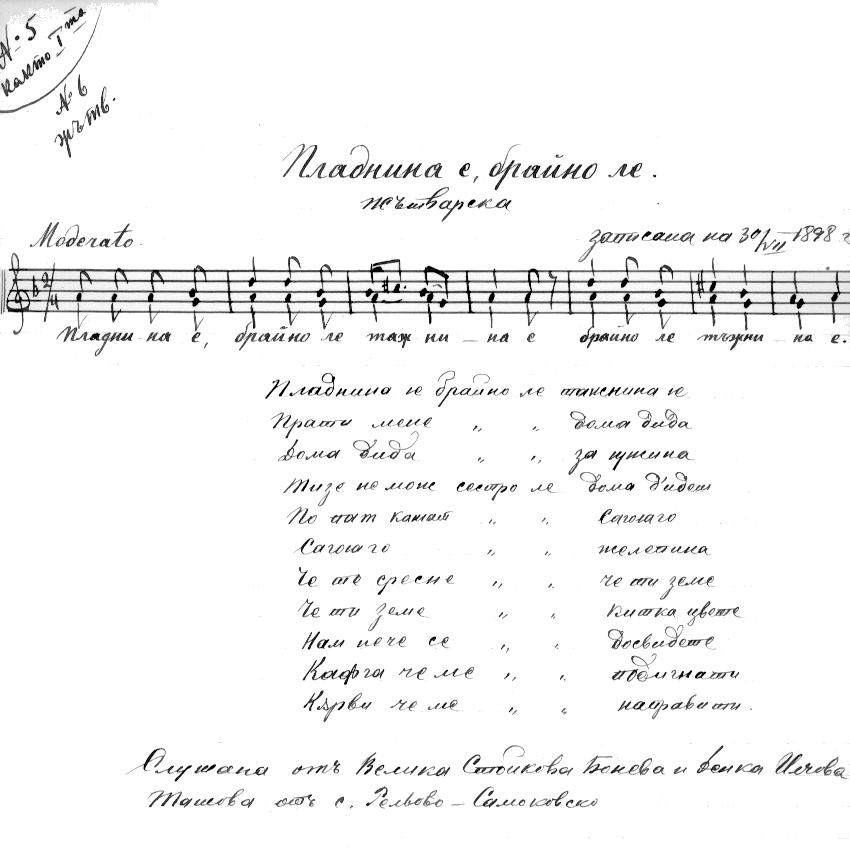 № 5
както I та
№ 6
жътв.
Пладнина е, брайно ле.
жътварска
Moderato.
записана на 30/VII 1898 г
2/4
Пладни - на е, брайно ле таж ни - на е брайно ле тъжни - на е.
Пладнина ѥ брайно ле тажнина ѥ
Прати мене " " дома дида
Дома дида " " за ужина
Тизе не мож сестро ле дома д'идеш
По пат катат " "
" " желепина
Че те сресне " " че ти земе
Че ти земе " " китка цвете
Нам нече се " " досвидете
Кафга че ме " " подигнати
Кърви че ме " " направити.
Слушана отъ Велика Стоикова Бонева и Венка Илчова
Ташова отъ с. Рельово - Самоковско